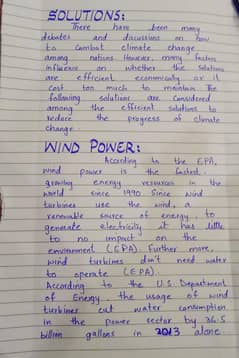 SOLUTIONS:
There have been many
debates and discussions on how
to combat climate change
among nations. However, many factors
influence on whether the solutions
are efficient economically or it
cost too much to maintain. The
following solutions are considered
among the efficient solutions to
reduce the progress of climate
change.
WIND POWER:
According to the EPA,
wind power is the fastest
growing energy resources in the
world since 1990. Since wind
turbines use the wind, a
renewable source of energy, to
generate electricity it has little
to no impact on the
environment (EPA). Further more,
wind turbines don't need water
to operate (EPA).
According to the U.S. Department
of Energy, the usage of wind
turbines cut water consumption
in the power sector by 36.5
billion gallons in 2013 alone.